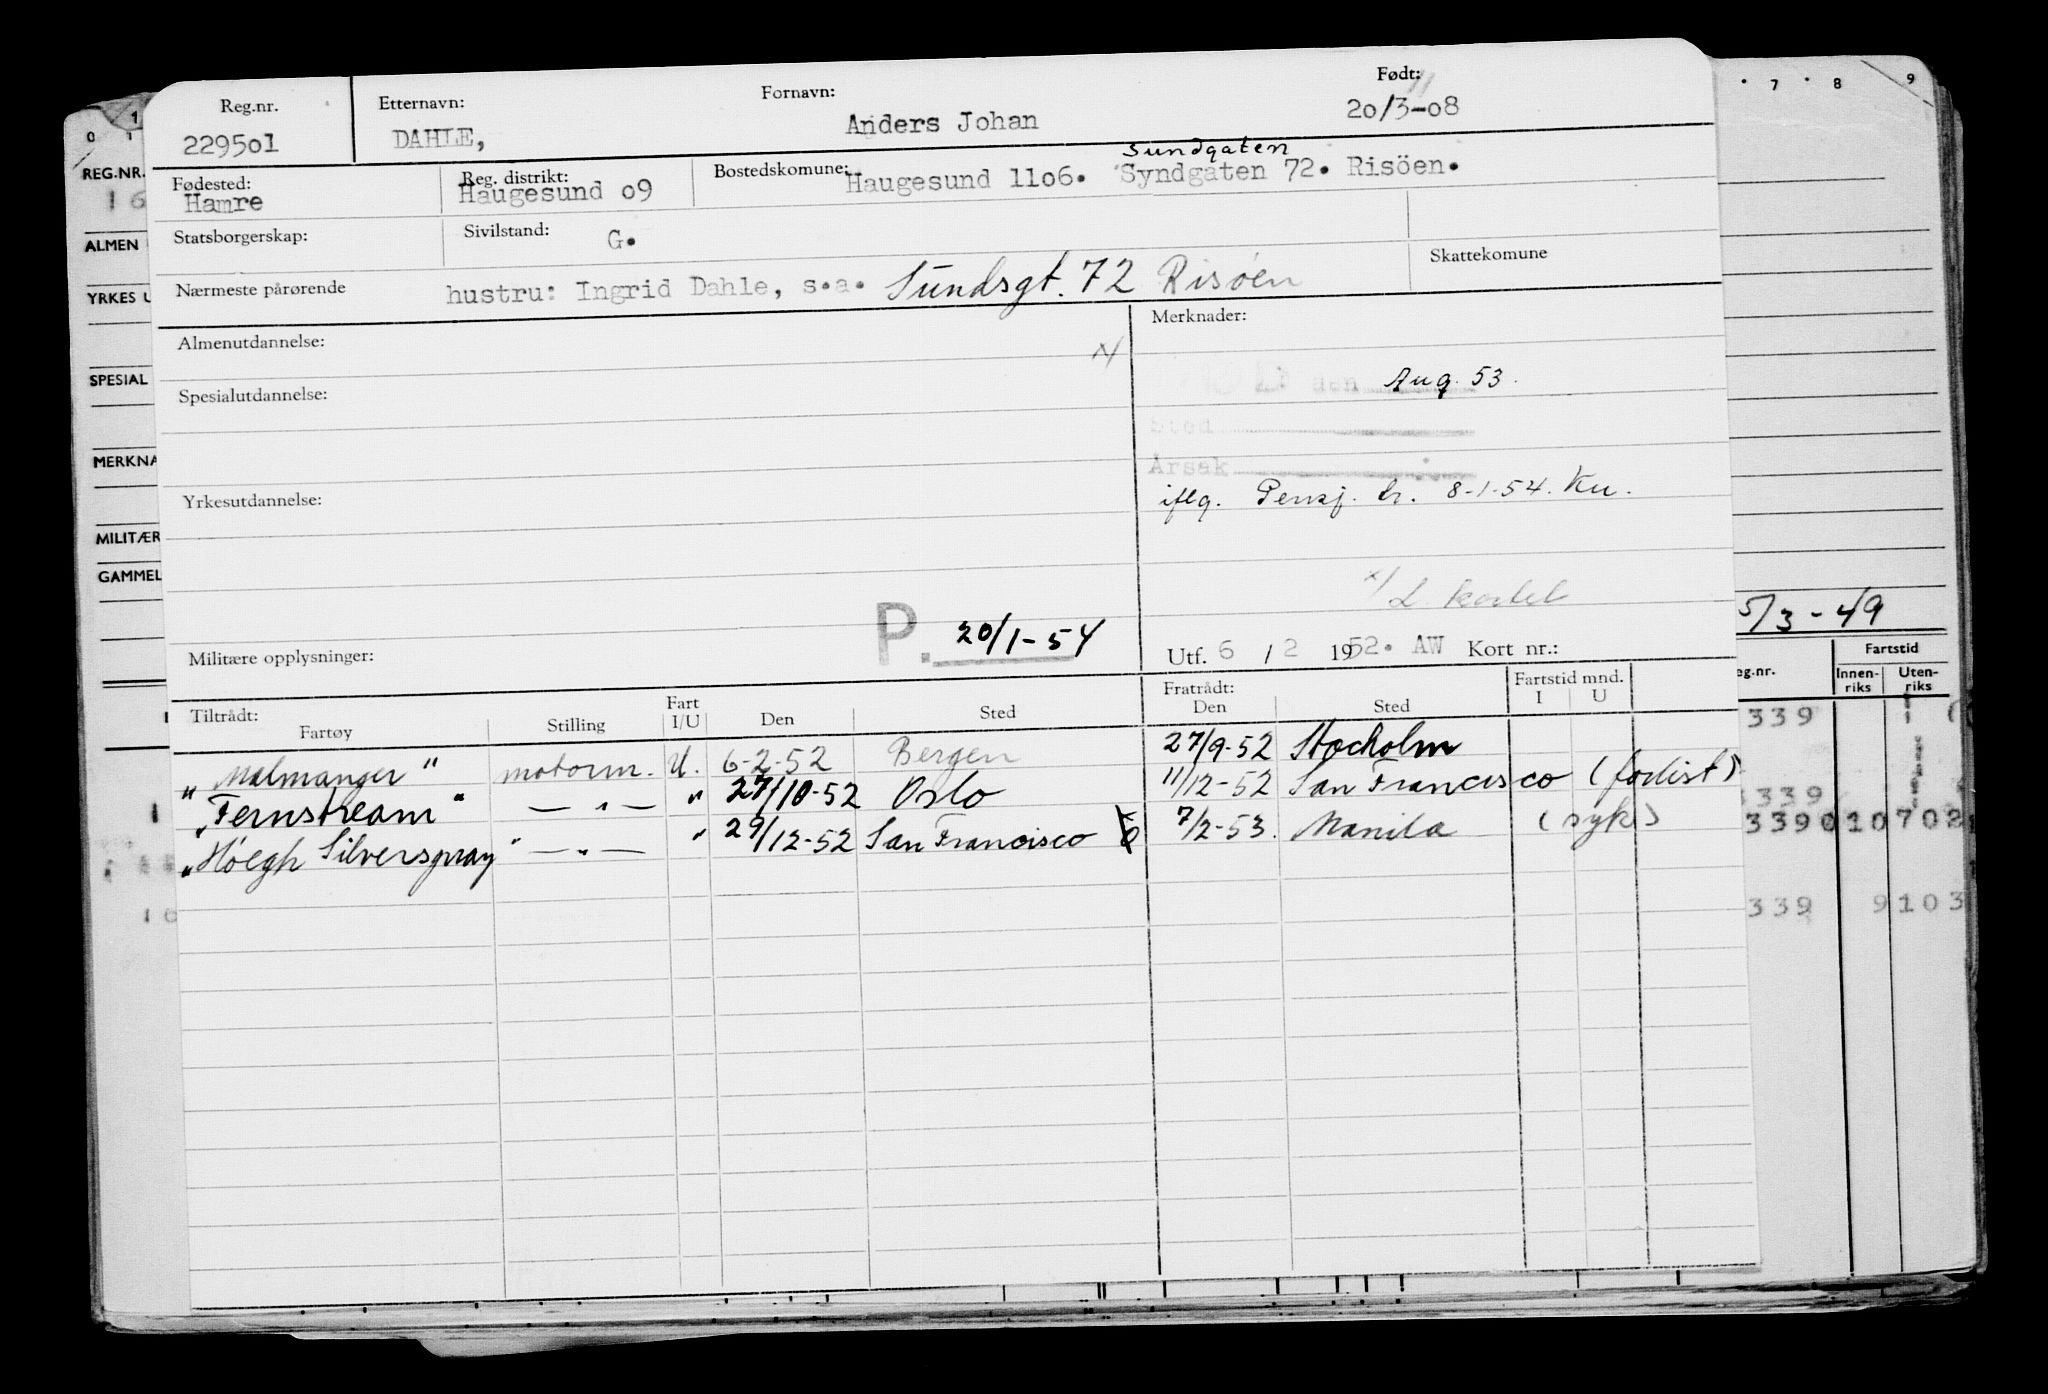 Reg.nr. Etternavn: Fornavn: Født:
229501 DAHLE, Anders Johan 20/3-08
Sundgaten
Fødested: Reg. distrikt: Bostedskomune:
Hamre Haugesund 09 Haugesund 1106. Syndgaten 72. Risöen.
Statsborgerskap: Sivilstand: G.
Skattekomune
Nærmeste pårørende hustru: Ingrid Dahle, s.a. Sundsgt. 72 Risøen
Almenutdannelse: x/ Merknader:
den Aug. 53.
Spesialutdannelse:
Sted
Årsak
Yrkesutdannelse: iflg. Pensj. br. 8-1-54. Ku.
x/ L. kartel
P. 20/1-54
Militære opplysninger: Utf. 6 / 2 1952. AW Kort nr.:
Tiltrådt: Fratrådt: Fartstid mnd.
Fartøy Stilling Fart I/U Den Sted Den Sted I U
"Malmanger" motorm. U. 6-2-52 Bergen 27/9-52 Stocholm
"Fernstream" — " — " 27/10-52 Oslo 11/12-52 San Francisco (forlist)
"Höegh Silverspray" — " — " 29/12-52 San Francisco 7/2-53. Manila (syk)
0 1
1
REG.NR.
16
ALMEN
YRKES U
SPESIAL
MERKNA
MILITÆR
GAMMEL
16
7 8 9
5/3-49
eg.nr. Fartstid
Innen-riks Uten-riks
339
339
339 010 702
339 9103